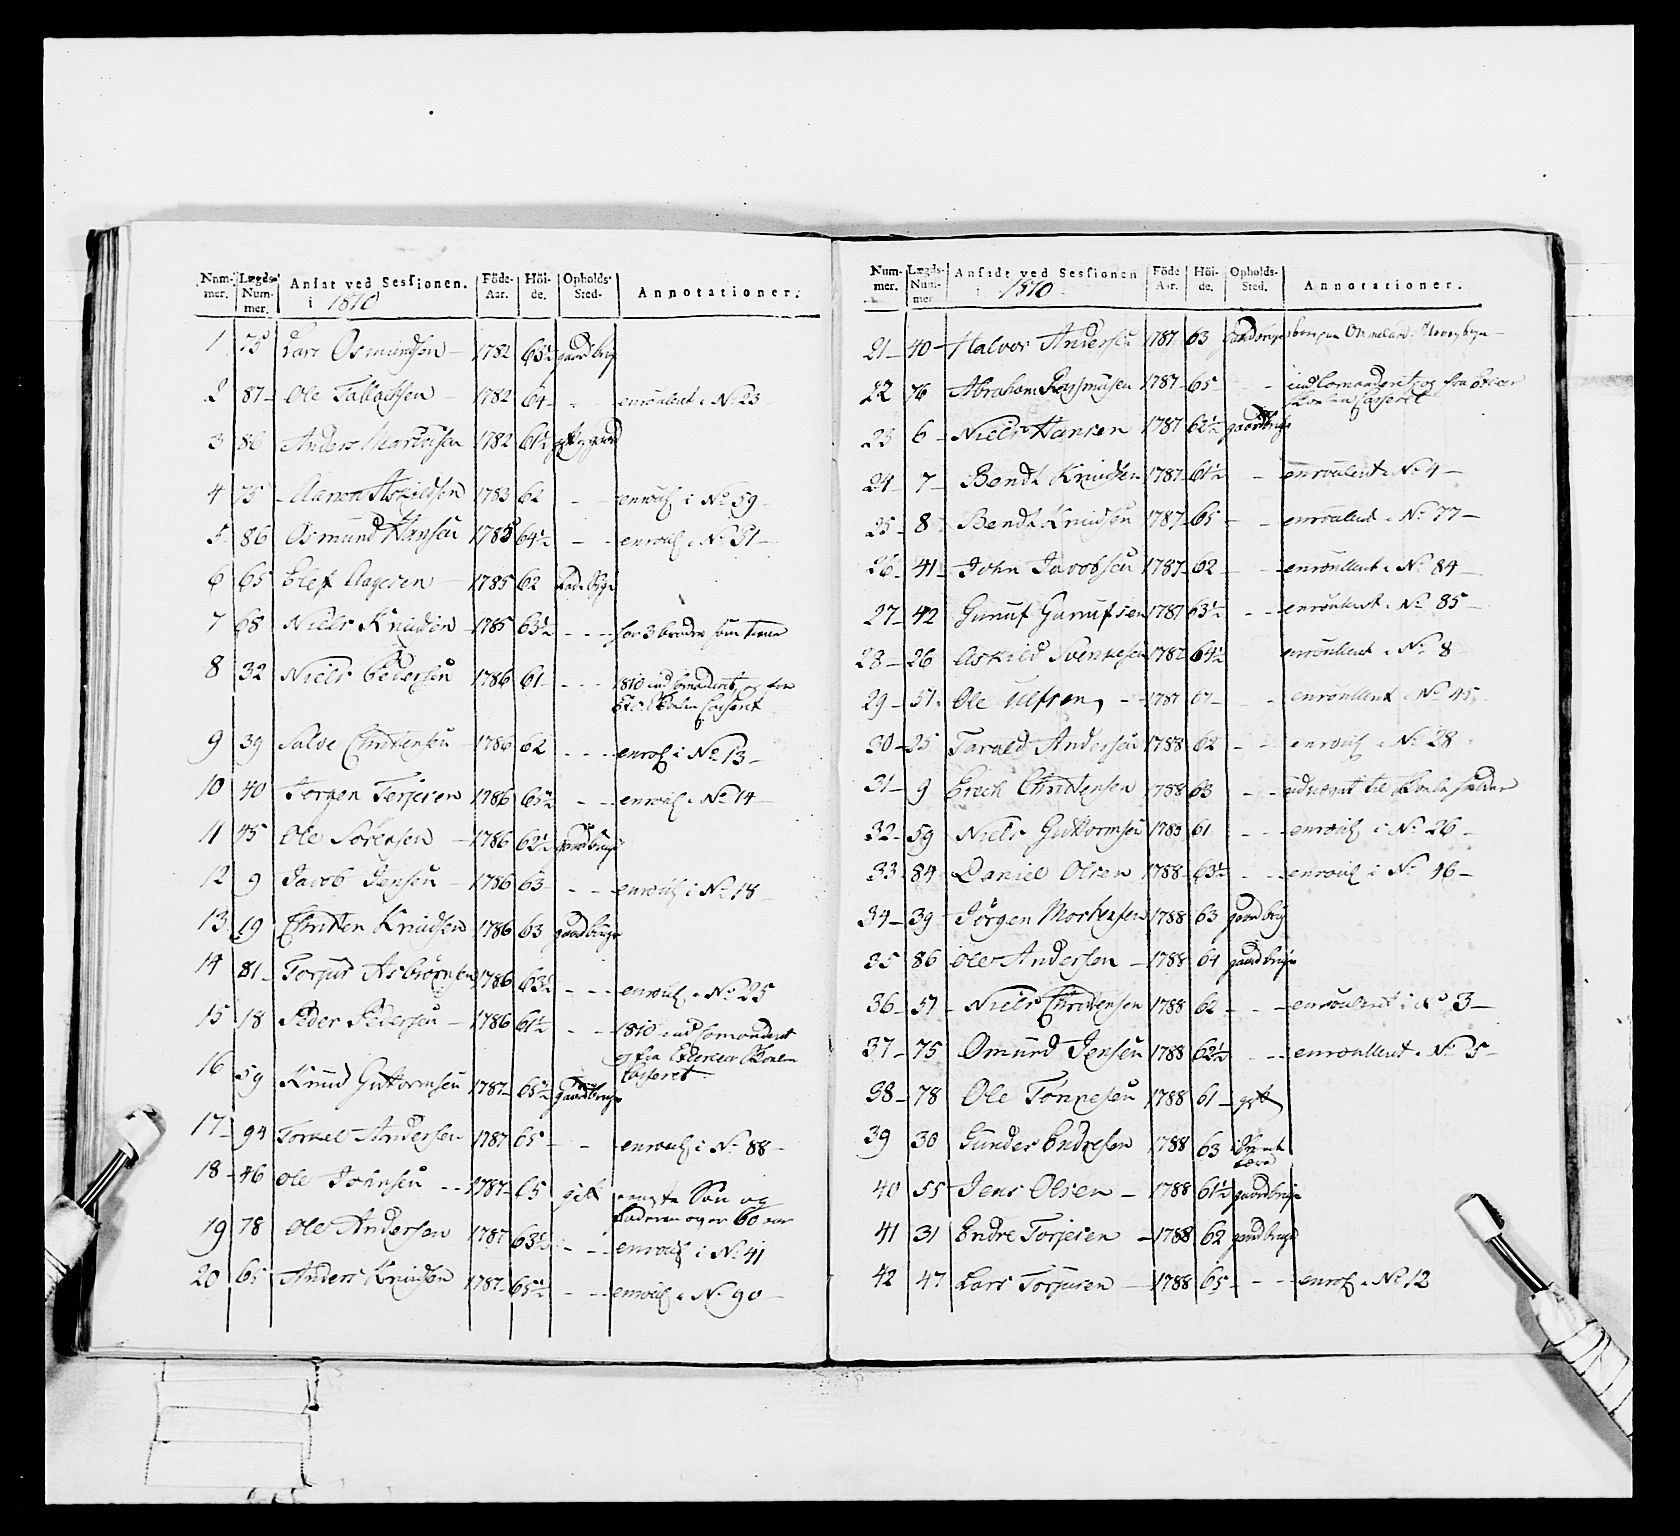 Num-mer. Lægds-Num-mer. Ansat ved Sessionen. i 1810 Föde-Aar. Höi-de. Opholds-Sted. Annotationer.
1 75 Lars Osmundsen 1782 63½ gaardbrug
2 87 Ole Tallachsen 1782 64 - enroulent i No 23
3 86 Anders 1782 61½
4 75 Aanon Askildsen 1783 62 - - enroul i No 59
5 86 Osmund Hansen 1785 64½ - - enroul i No 51
6 65 Elef Aagesen 1785 62
7 68 Niels Knudsen 1785 63½ - - - har 3 brødre som tiener
8 32 Niels Pedersen 1786 61 - - - 1810 og fra
Casseret
9 39 Salve Christensen 1786 62 - - - enrol i No 13
10 40 Jørgen Terjesen 1786 65½ - - enroul i No 14
11 45 Ole Sørensen 1786 62½ gaardbrug
12 9 Jacob Jensen 1786 63 - - enroul i No 18
13 19 Christen Knudsen 1786 63 gaardbrug
14 81 Torjus Asbiørnsen 1786 63½ - - - enroul i No 25
15 18 Peder Pedersen 1786 61½ - - 1810
og fra Exerceer Skolen
Casseret
16 59 Knud Guttormsen 1787 65½ gaardbrug
17 94 Torkel Andersen 1787 65 - - enroul i No 88
18 46 Ole Johnsen 1787 65 gift Søn og
Faderen over 60 aar
19 78 Ole Andersen 1787 63½ - - enroul i No 41
20 65 Anders Knudsen 1787 65½ - - enroul i No 90
Num-mer. Lægds-Num-mer. Ansadt ved Sessionen i 1810 Föde Aar. Höi-de. Opholds-Sted. Annotationer.
21 40 Halvor Andersen 1787 63 gaardbrug
22 76 Abraham Rasmusen 1787 65 - og fra
Skolen Casseret
23 6 Niels Hansen 1787 62½ gaardbrug
24 7 Bendt Knudsen 1787 61½ - enroulent i No 4
25 8 Bendt Knudsen 1787 65 - - enroulent i No 77
26 41 John Jacobsen 1787 62 - enroullent i No 84
27 42 Gunuf Gunufsen 1787 63½ - - enroulent i No 85
28 26 Askild Svenkesen 1787 64½ enroullent i No 8
29 57 Ole Ulfsen 1787 67 - enroullent i No 45
30 25 Tarald Andersen 1788 62 - - enroul i No 28
31 9 Erich Christensen 1788 63 - - udnævnt til
32 59 Niels Guttormsen 1788 61 - - enroul i No 26
33 84 Daniel Olsen 1788 63½ - - enroul i No 46
34 39 Jørgen Mortensen 1788 63 gaardbrug
35 86 Ole Andersen 1788 64 gaardbrug
36 57 Niels Christensen 1788 62 - - enroulent i No 3
37 75 Omund Jensen 1788 62½ - - enroullent i No 5
38 78 Ole Tønnesen 1788 61 gift
39 30 Gunder Endresen 1788 63
40 55 Jens Olsen 1788 61½ gaardbrug
41 31 Endre Torjesen 1788 62 gaardbrug
42 47 Lars Torjusen 1788 65 - - enrol i No 12